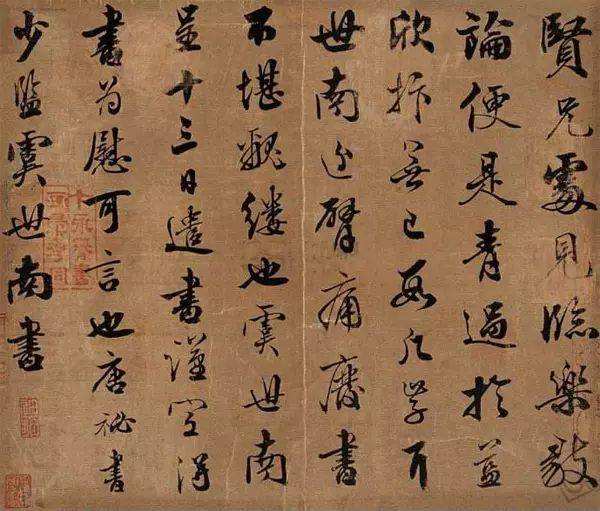 賢兄處見臨樂毅
論便是青過於藍
欣抃無已數學耳
世南近臂痛廢書
不堪覼縷也虞世南
呈十三日遣書謹空得
書為慰可言也唐秘書
少監虞世南書